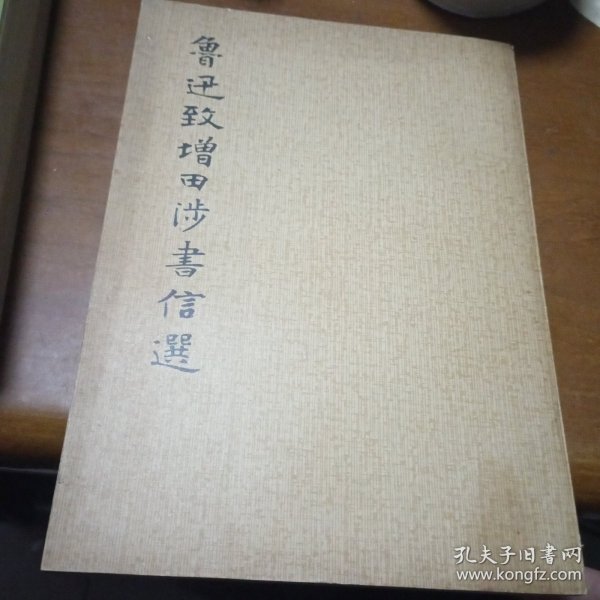 魯迅致增田涉書信選
孔夫子旧書网
www.kongfz.com